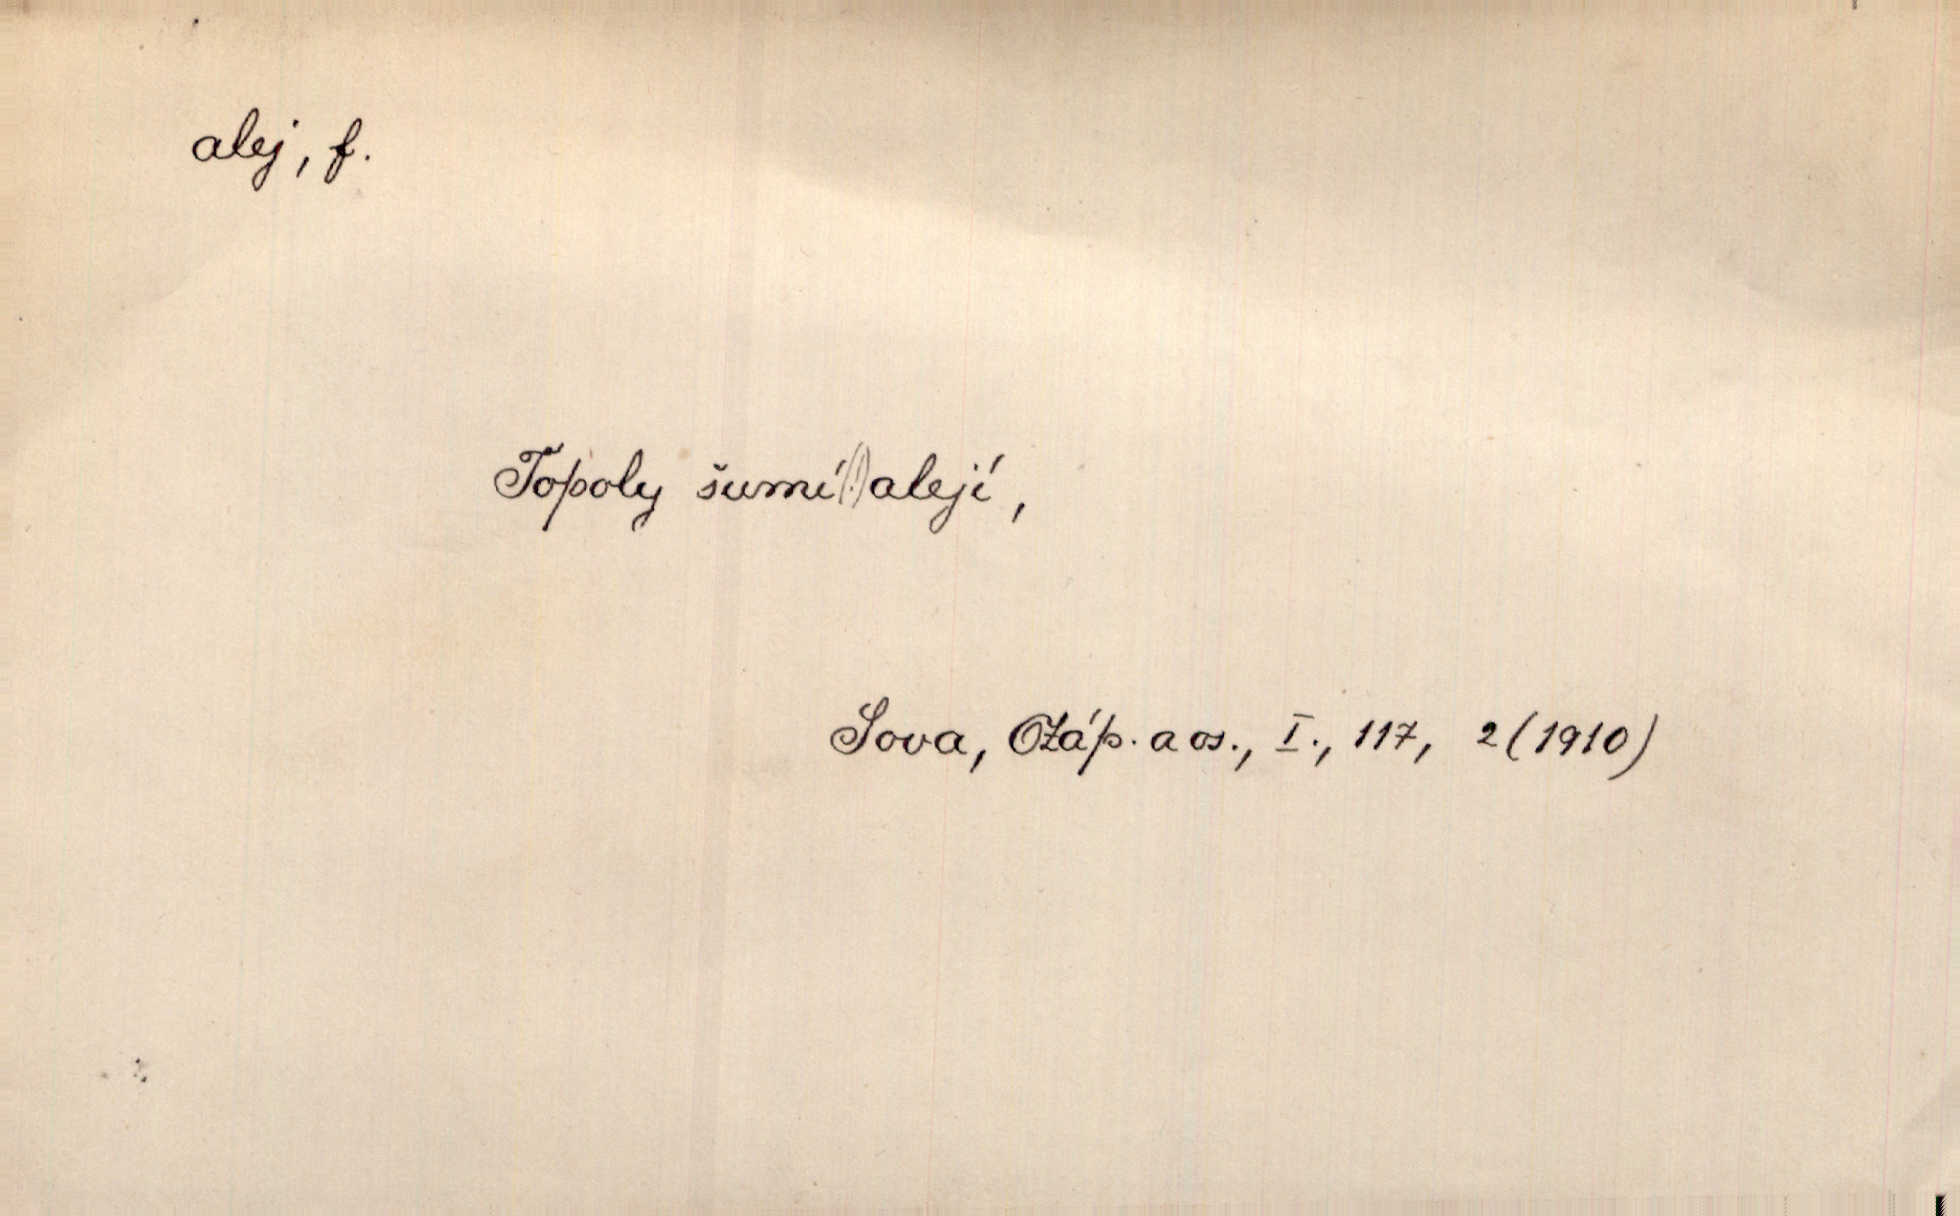 alej, f.
Topoly šumí(!)alejí,
Sova, Zápı. a os., I., 117, 2(1910)